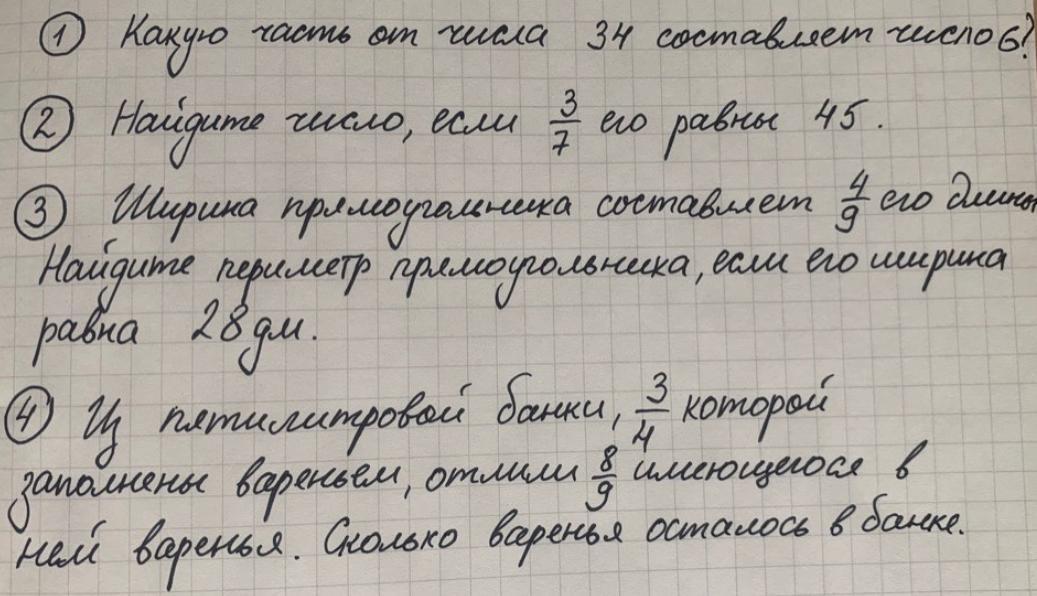 ① Какую часть от числа 34 составляет число 6?
② Найдите число, если 3/7 его равны 45.
③ Ширина прямоугольника составляет 4/9 его длины
Найдите периметр прямоугольника, если его ширина
равна 28 дм.
④ Из пятилитровой банки, 3/4 которой
заполнены вареньем, отлили 8/9 имеющегося в
ней варенья. Сколько варенья осталось в банке.